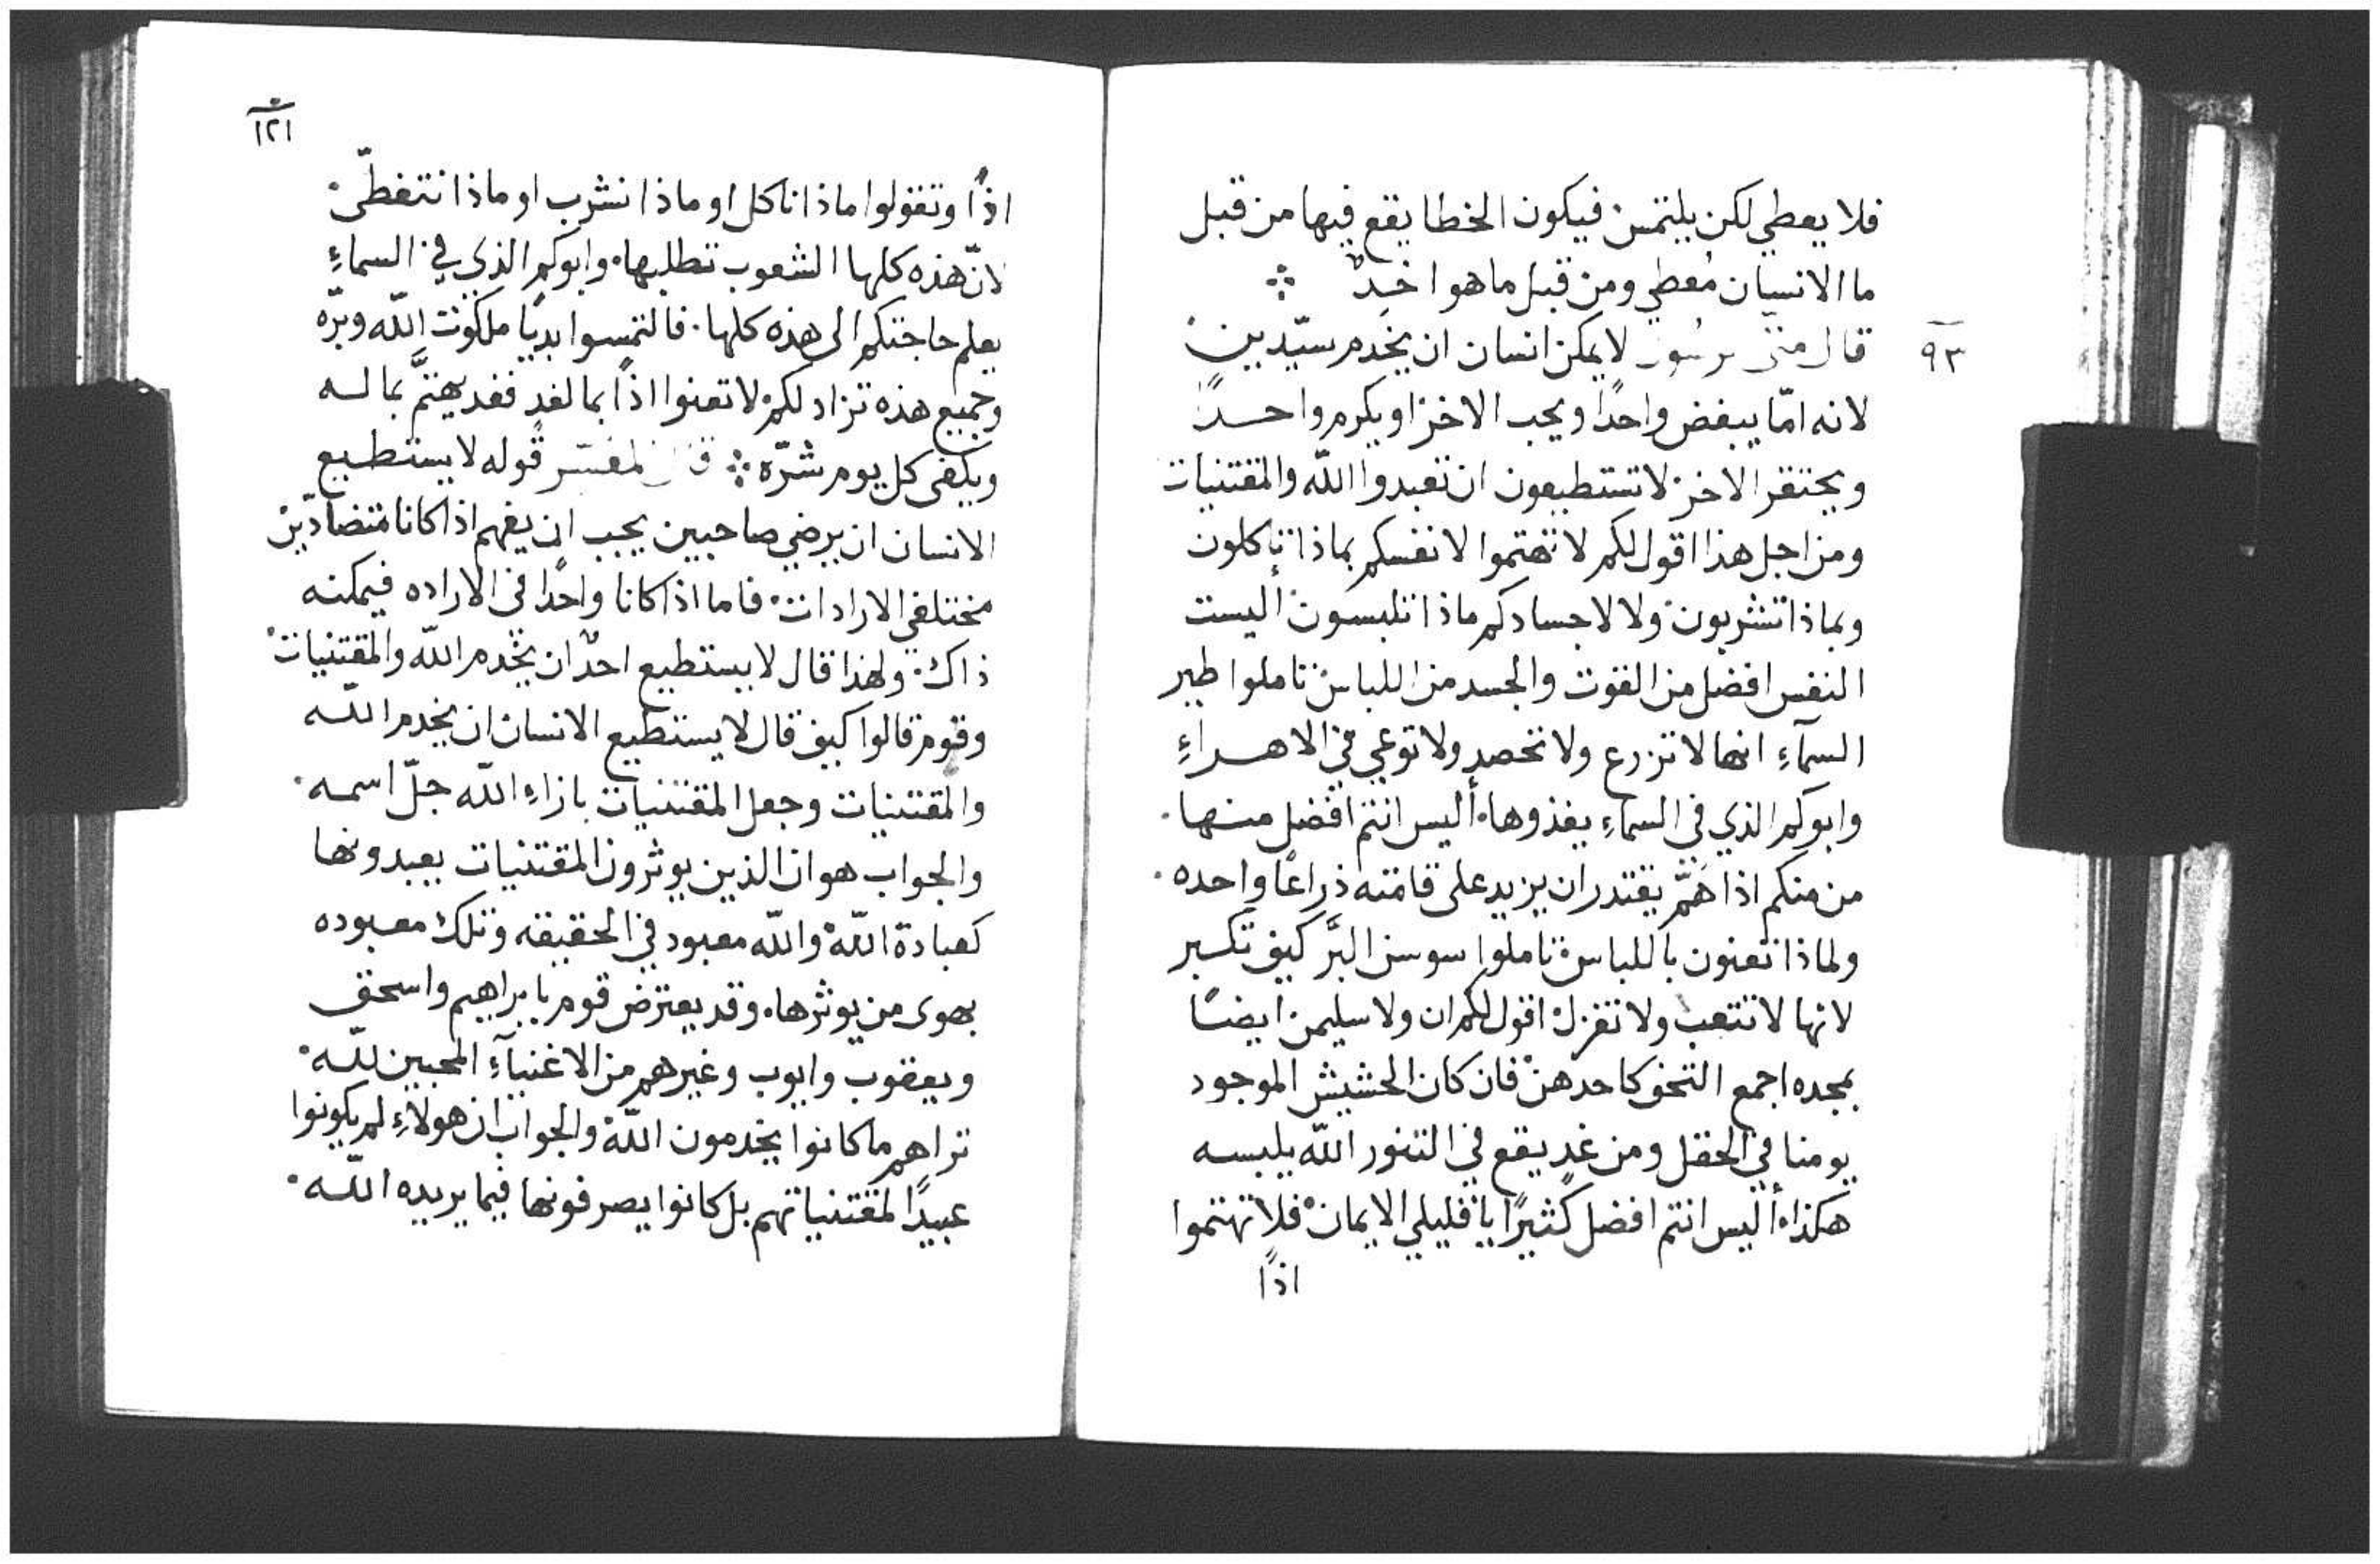 فلا يعطي لكن يلتمس فيكون الخطا يقع فيها من قبل
ما الانسان مُعطي ومن قبل ما هو اخدٌ
٩٣
قال متى لا يمكن انسان ان يخدم سيّدين
لانه امّا يبغض واحدًا ويحب الاخر او يكرم واحدًا
ويحتقر الاخر لا تستطيعون ان تعبدوا اللّه والمقتنيات
ومن اجل هذا اقول لكم لا تهتموا لانفسكم بماذا تاكلون
وبماذا تشربون ولا لاجسادكم ماذا تلبسون أليست
النفس افضل من القوت والجسد من اللباس تاملوا طير
السمآءِ انها لا تزرع ولا تحصد ولا توعي في الاهراءِ
وابوكم الذي في السماءِ يغذوها أليس انتم افضل منها
من منكم اذا هَمَّ يقتدر ان يزيد على قامته ذراعًا واحده
ولماذا تعنون باللباس تاملوا سوسن البَّر كيف تكبر
لانها لا تتعب ولا تغزل اقول لكم ان ولا سليمن ايضًا
بمجده اجمع التحف كاحدهن فان كان الحشيش الموجود
يومنا في الحقل ومن غد يقع في التنور اللّه يلبسه
هكذا أليس انتم افضل كثيرًا يا قليلي الايمان فلا تهتموا
اذًا
١٢١
اذًا وتقولوا ماذا ناكل او ماذا نشرب او ماذا نتغطّى
لانّ هذه كلها الشعوب تطلبها وابوكم الذي في السماءِ
يعلم حاجتكم الى هذه كلها فالتمسوا بديًا ملكوت اللّه وبرّه
وجميع هذه تزاد لكم لا تعنوا اذًا بما لغدٍ فغد يهتمَّ بما له
ويكفى كل يوم شرّه المفسّر قوله لا يستطيع
الانسان ان يرضي صاحبين يجب ان يفهم اذا كانا متضادّين
مختلفي الارادات فاما اذا كانا واحدًا في الاراده فيمكنه
ذاك ولهذا قال لا يستطيع احدٌ ان يخدم اللّه والمقتنيات
وقوم قالوا كيف قال لا يستطيع الانسان ان يخدم اللّه
والمقتنيات وجعل المقتنيات بازاءِ اللّه جلّ اسمه
والجواب هو ان الذين يوثرون المقتنيات يعبدونها
كعبادة اللّه واللّه معبود في الحقيقه وتلك معبوده
بهوى من يوثرها وقد يعترض قوم بابراهيم واسحق
ويعقوب وايوب وغيرهم من الاغنيآءِ المحبين للّه
تراهم ما كانوا يخدمون اللّه والجواب ان هولاءِ لم يكونوا
عبيدًا لمقتنياتهم بل كانوا يصرفونها فيما يريده اللّه